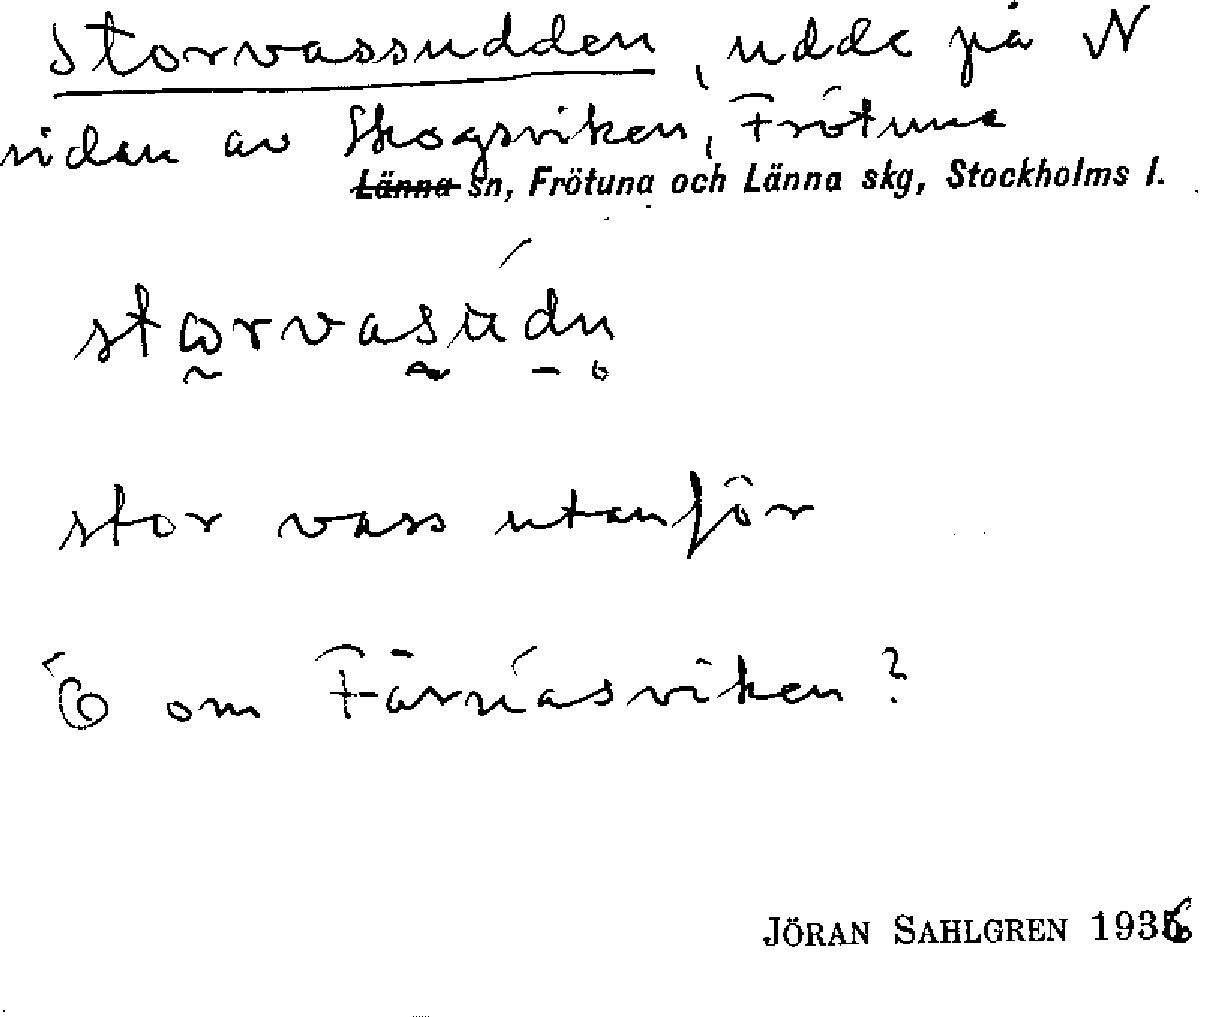 Storvassudden, udde på N
sidan av Skogsviken, Frötuna
Länna sn, Frötuna och Länna skg, Stockholms l.
storvasudn
stor vass utanför
Ö om Färnäsviken?
JÖRAN SAHLGREN 1936